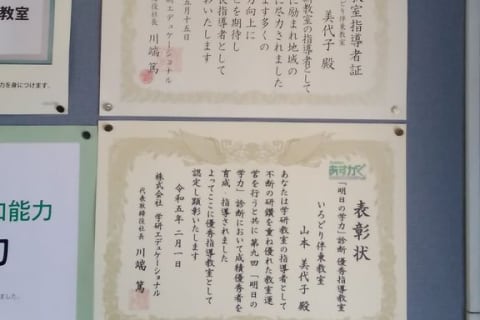 室指導者証
どり伴東教室
美代子 殿
教室の指導者として
に励まれ地域の
に尽力されました
ます多くの
力向上に
を期待し
指導者として
いたします
五月十五日
研エデュケーショナル
役社長 川端 篤
教室
力を身につけます。
能力
あすがく
表彰状
「明日の学力」診断 優秀指導教室
いろどり伴東教室
山本 美代子 殿
あなたは学研教室の指導者として
不断の研鑽を重ね優れた教室運
営を行うと共に第九回「明日の
学力」診断において成績優秀者を
育成・指導されました
よってここに優秀指導教室として
認定し顕彰いたします
令和五年二月一日
株式会社 学研エデュケーショナル
代表取締役社長 川端 篤